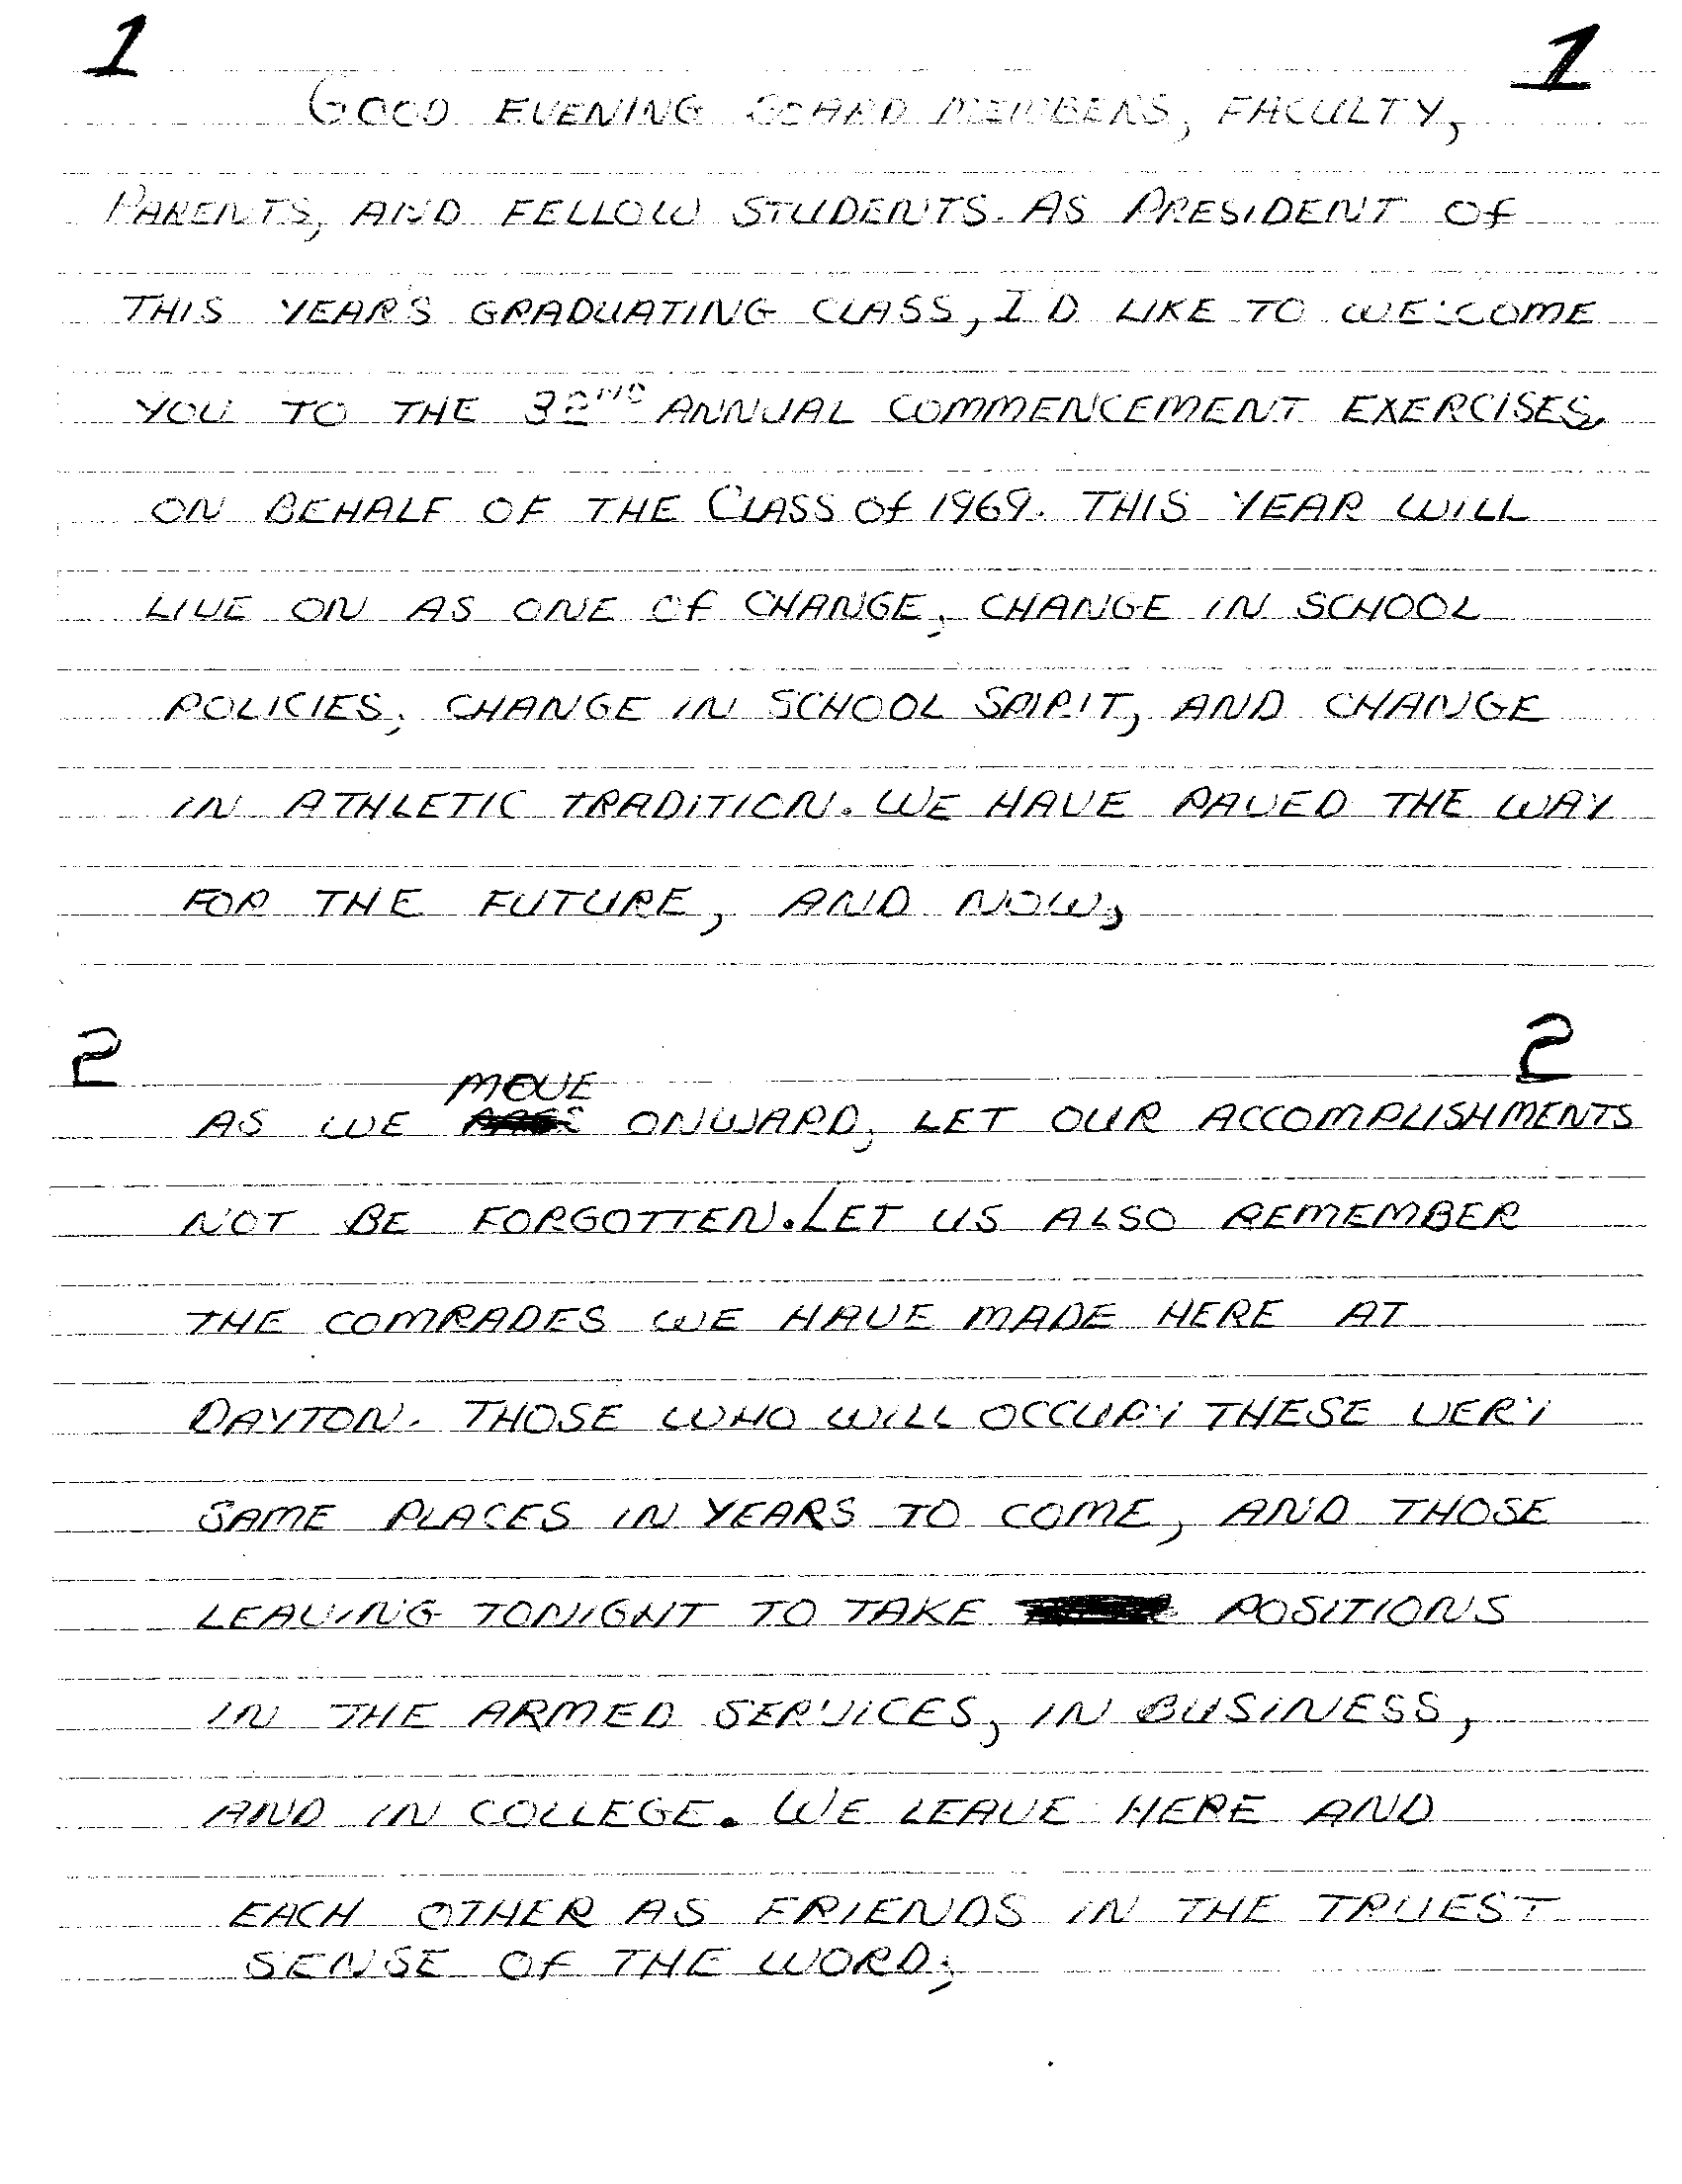 1 1
GOOD EVENING BOARD MEMBERS, FACULTY,
PARENTS, AND FELLOW STUDENTS. AS PRESIDENT OF
THIS YEARS GRADUATING CLASS, I'D LIKE TO WELCOME
YOU TO THE 32ND ANNUAL COMMENCEMENT EXERCISES,
ON BEHALF OF THE CLASS OF 1969. THIS YEAR WILL
LIVE ON AS ONE OF CHANGE; CHANGE IN SCHOOL
POLICIES, CHANGE IN SCHOOL SPIRIT, AND CHANGE
IN ATHLETIC TRADITION. WE HAVE PAVED THE WAY
FOR THE FUTURE, AND NOW,
2 2
MOVE
AS WE ONWARD, LET OUR ACCOMPLISHMENTS
NOT BE FORGOTTEN. LET US ALSO REMEMBER
THE COMRADES WE HAVE MADE HERE AT
DAYTON. THOSE WHO WILL OCCUPY THESE VERY
SAME PLACES IN YEARS TO COME, AND THOSE
LEAVING TONIGHT TO TAKE POSITIONS
IN THE ARMED SERVICES, IN BUSINESS,
AND IN COLLEGE. WE LEAVE HERE AND
EACH OTHER AS FRIENDS IN THE TRUEST
SENSE OF THE WORD;